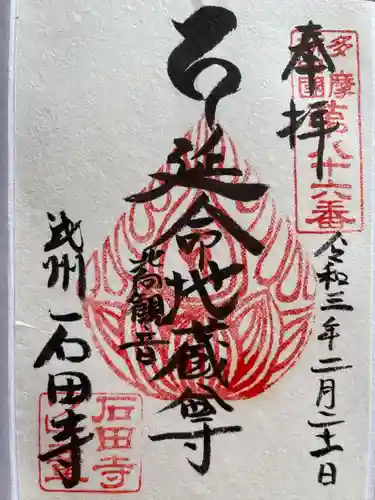 奉拝
多摩
國
第八十六番
令和三年二月二十一日
延命地蔵尊
北向観音
武州
石田寺
石田寺